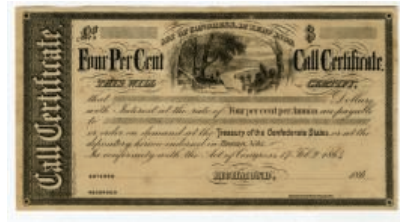 Call Certificate
ACT OF CONGRESS,
Four Per Cent Call Certificate.
THIS WILL CERTIFY,
that Dollars
with Interest at the rate of Four per cent per Annum are payable
to
or order on demand at the Treasury of the Confederate States, or at the
depository hereon endorsed in
In conformity with the Act of Congress 17 Feb'y 1864
ENTERED RICHMOND, 186
RECORDED